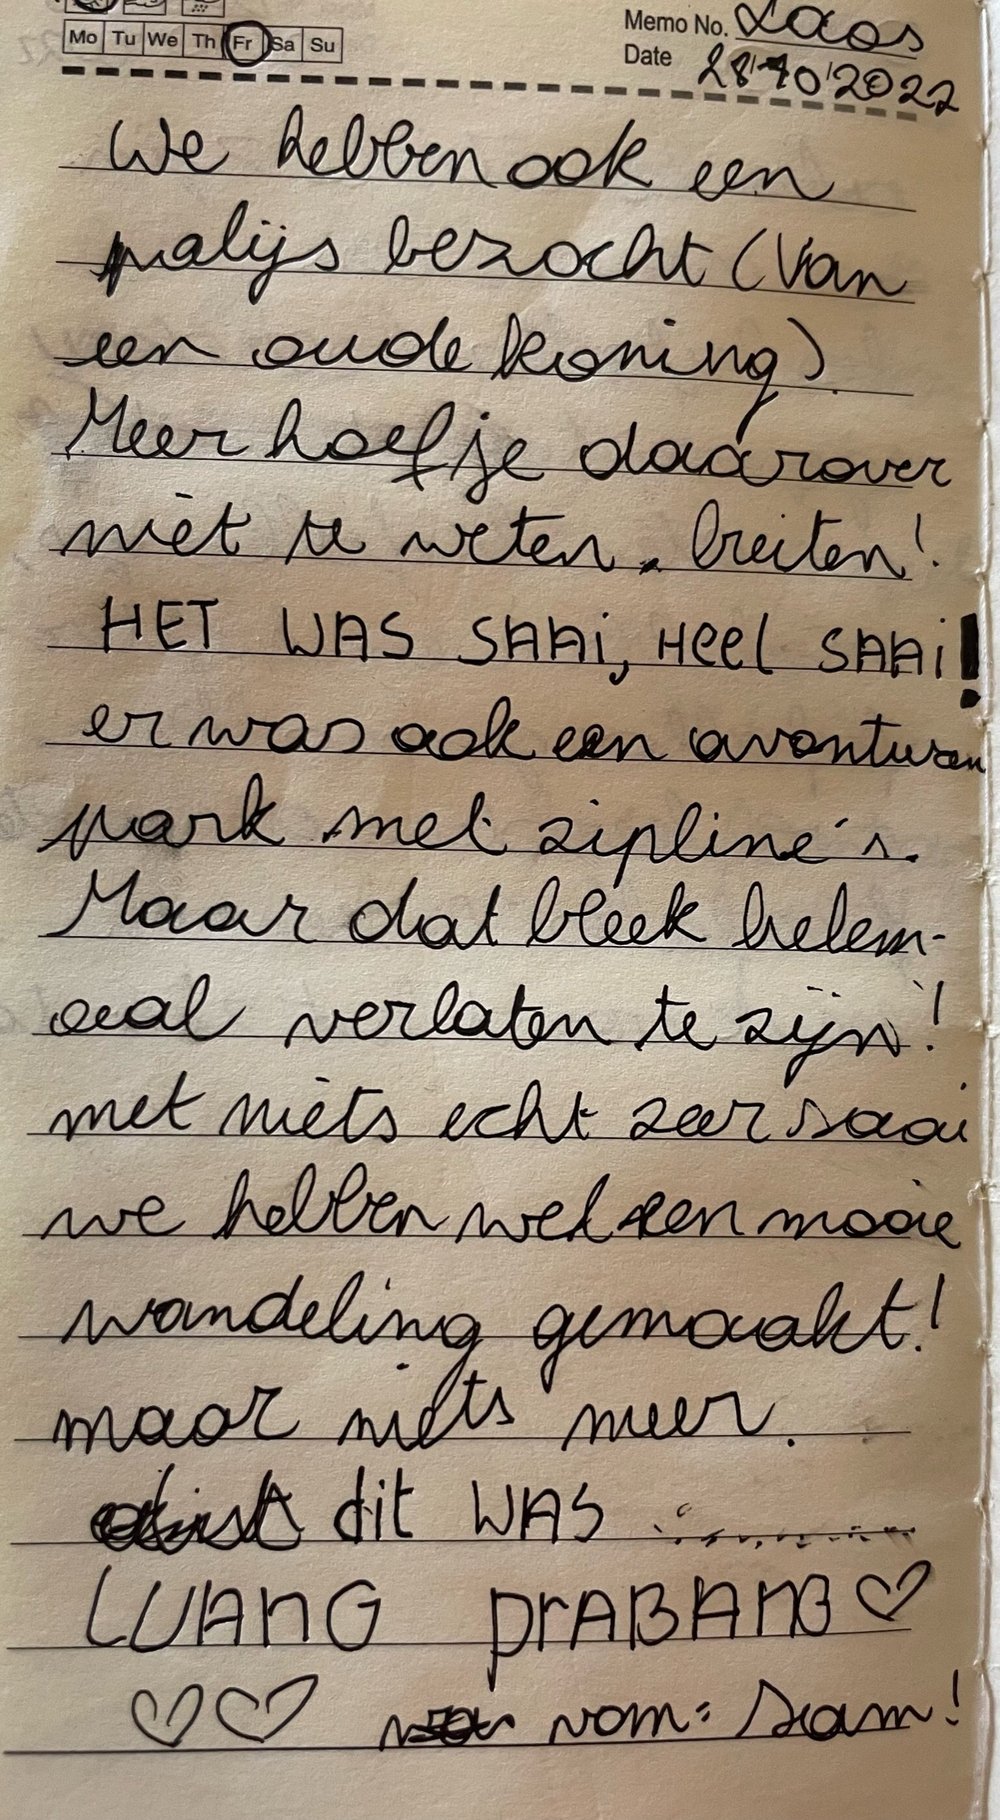 Mo Tu We Th Fr Sa Su
Memo No. Laos
Date 28/10/2022
We hebben ook een
palijs bezocht (Van
een oude koning).
Meer hoef je daarover
niet te weten. breiten!
HET WAS SAAi, Heel SAAi!
er was ook een avonturen
park met zipline's.
Maar dat bleek helem-
aal verlaten te zijn!
met niets echt zeer saai
we hebben wel een mooie
wandeling gemaakt!
maar niets meer.
dit WAS ..........
LUANG PrABANG ♡
♡♡ vom: Siam!